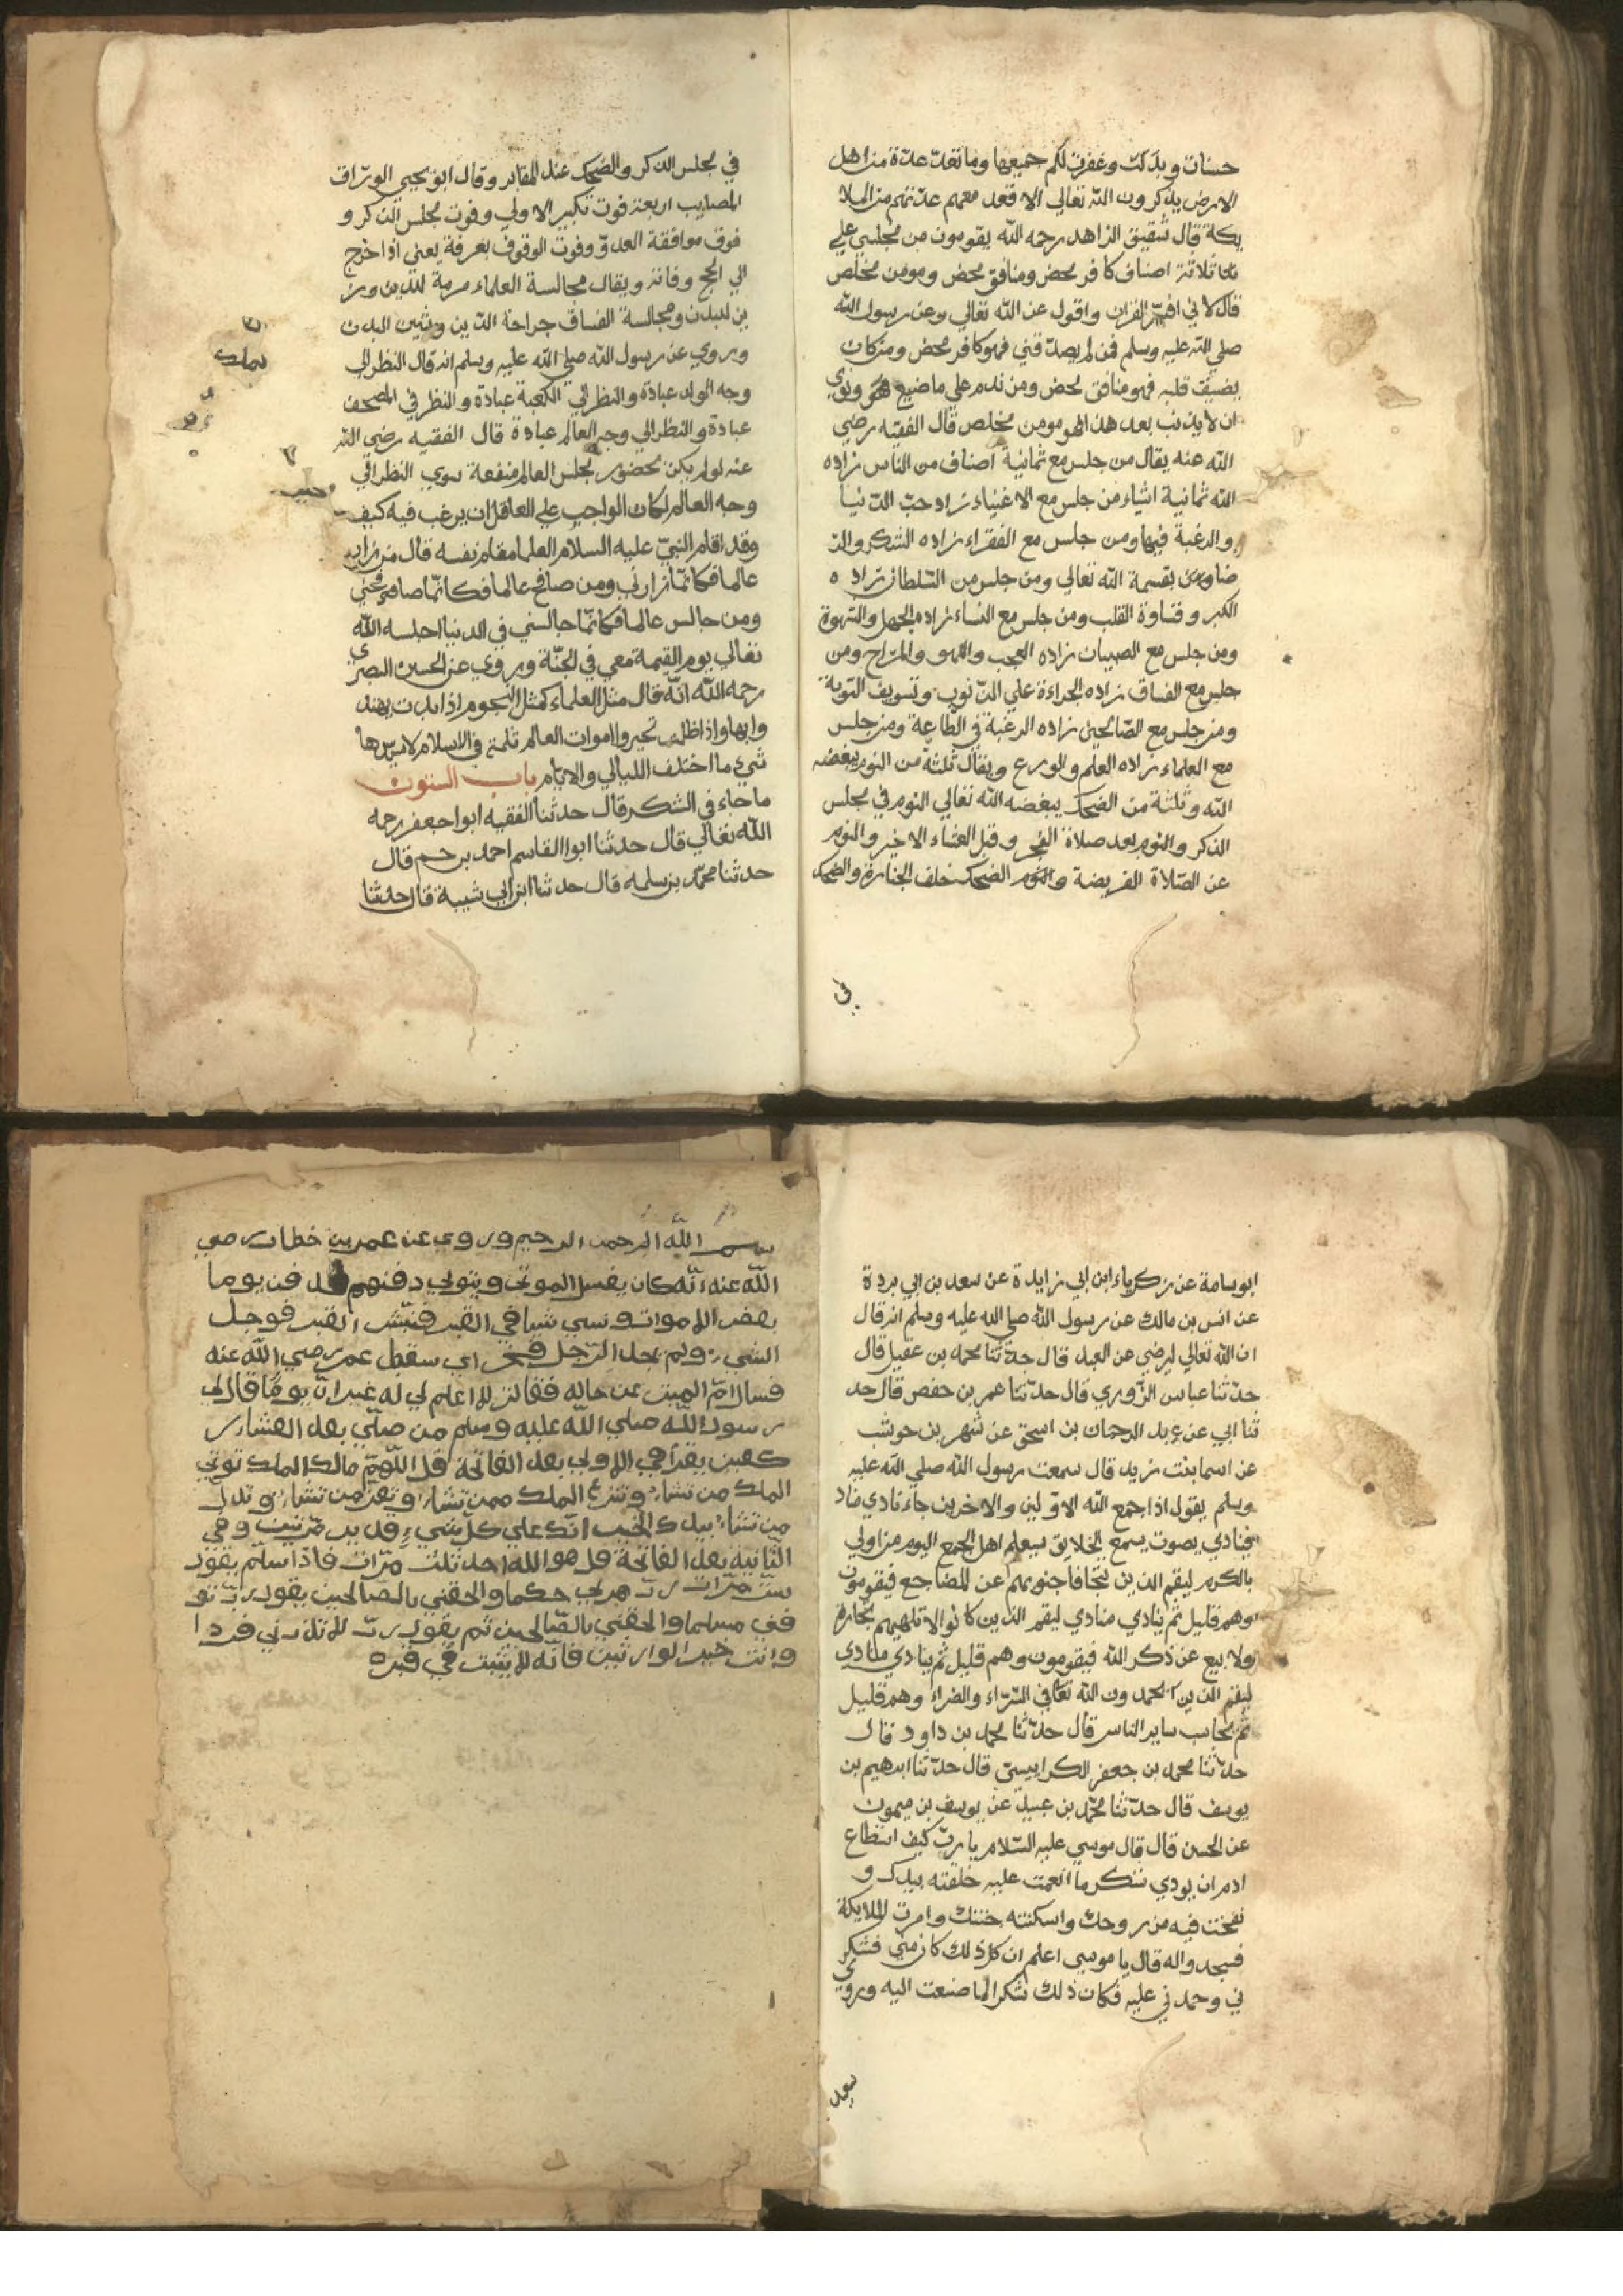 حسنات وبدلت وغفرت لكم جميعها وما تعدت عدة من اهل
الارض يذكرون الله تعالي الا قعد معهم عدتهم من الملا
يكة قال شقيق الزاهد رحمه الله يقومون من مجلسي علي
ثلاثة اصناف كافر محض ومنافق محض ومومن مخلص
قال لاني افسر القران واقول عن الله تعالي وعن رسول الله
صلي الله عليه وسلم فمن لم يصدقني فهو كافر محض ومن كان
يضيق قلبه فهو منافق محض ومن ندم علي ما صنيع هو ونوي
ان لا يذنب بعد هذا فهو مومن مخلص قال الفقيه رضي
الله عنه يقال من جلس مع ثمانية اصناف من الناس زاده
الله ثمانية اشياء من جلس مع الاغنياء زاد حب الدنيا
والرغبة فيها ومن جلس مع الفقراء زاده الشكر والر
ضاء بقسمة الله تعالي ومن جلس من السلطان زاده
الكبر وقساوة القلب ومن جلس مع النساء زاده الجهل والشهوة
ومن جلس مع الصبيان زاده العجب واللهو والمزاح ومن
جلس مع الفساق زاده الجراءة علي الذنوب وتسويف التوبة
ومن جلس مع الصالحين زاده الرغبة في الطاعة ومن جلس
مع العلماء زاده العلم والورع ويقال ثلثة من النوم يبغضه
الله وثلثة من الضحك يبغضه الله تعالي النوم في مجلس
الذكر والنوم بعد صلاة الفجر وقبل العشاء الاخير والنوم
عن الصلاة الفريضة والنوم الضحك خلف الجنازة والضحك
في
في مجلس الذكر والضحك عند المقابر وقال ابو يحيي الوراق
المصايب اربعة فوت تكبير الاولي وفوت مجلس الذكر و
فوق موافقة العدو وفوت الوقوف بعرفة يعني اذا خرج
الي الحج وفاته ويقال مجالسة العلماء مرمة للدين وز
ين لبدن ومجالسة الفساق جراحة الدين وشين البدن
وروي عن رسول الله صلي الله عليه وسلم انه قال النظر الي
وجه الولد عبادة والنظر الي الكعبة عبادة والنظر في المصحف
عبادة والنظر الي وجه العالم عبادة قال الفقيه رضي الله
عنه لو لم يكن بحضور مجلس العالم منفعة سوي النظر الي
وجه العالم لكان الواجب علي العاقل ان يرغب فيه كيف
وقد اقام النبي عليه السلام العلما مقام نفسه قال من زار
عالما فكانما زارني ومن صافح عالما فكانما صافحني
ومن جالس عالما فكانما جالسني في الدنيا اجلسه الله
تعالي يوم القيمة معي في الجنة وروي عن الحسن البصري
رحمه الله انه قال مثل العلماء كمثل النجوم اذا بدت يهتد
وا بها واذا اظلمت تحيروا اموات العالم ثلمة في الاسلام لا يسرها
شيء ما اختلف الليالي والايام باب الستون
ما جاء في الشكر قال حدثنا الفقيه ابوا جعفر رحمه
الله تعالي قال حدثنا ابوا القاسم احمد بن حم قال
حدثنا محمد بن سلمه قال حدثنا ابن ابي شيبة قال حدثنا
ابو سامة عن زكرياء ابن ابي زايدة عن سعد بن ابي بردة
عن انس بن مالك عن رسول الله صلي الله عليه وسلم انه قال
ان الله تعالي ليرضي عن العبد قال حدثنا محمد بن عقيل قال
حدثنا عباس الزوري قال حدثنا عمر بن حفص قال حد
ثنا ابي عن عبد الرحمان بن اسحق عن شهر بن حوشب
عن اسما بنت زيد قال سمعت رسول الله صلي الله عليه
وسلم يقول اذا جمع الله الاولين والاخرين جاء نادي مناد
فينادي بصوت يسمع الخلايق سيعلم اهل الجمع اليوم من اولي
بالكرم ليقم الذين تتجافا جنوبهم عن المضاجع فيقومون
وهم قليل ثم ينادي منادي ليقم الذين كانوا لا تلهيهم تجارة
ولا بيع عن ذكر الله فيقومون وهم قليل ثم ينادي منادي
ليقم الذين يحمدون الله تعالي في السراء والضراء وهم قليل
ثم يحاسب ساير الناس قال حدثنا محمد بن داود قال
حدثنا محمد بن جعفر الكرابيسي قال حدثنا ابرهيم بن
يوسف قال حدثنا محمد بن عبيد عن يوسف بن ميمون
عن الحسن قال قال موسي عليه السلام يا رب كيف استطاع
ادم ان يودي شكر ما انعمت عليه خلقته بيدك و
نفخت فيه من روحك واسكنته جنتك وامرت الملايكة
فسجدوا له قال يا موسي اعلم ان كل ذلك كان مني فشكر
ني وحمدني عليه فكان ذلك شكرا لما صنعت اليه وروي
سعيد
بسم الله الرحمن الرحيم وروي عن عمر بن خطاب رضي
الله عنه انه كان يغسل الموتى ويتولي دفنهم فدفن يوما
بعض الاموات ونسي شيا في القبر فنبش القبر فوجد
الشيء ولم يجد الرجل فخر اي سقط عمر رضي الله عنه
فسال ام الميت عن حاله فقالت لا اعلم لي له غير ان يوما قال لي
رسول الله صلي الله عليه وسلم من صلي بعد العشاء ر
كعتين يقرأ في الاولي بعد الفاتحة قل اللهم مالك الملك تؤتي
الملك من تشاء وتنزع الملك ممن تشاء وتعز من تشاء وتذل
من تشاء بيدك الخير انك علي كل شيء قدير مرتين وفي
الثانية بعد الفاتحة قل هو الله احد ثلث مرات فاذا سلم يقول
ست مرات رب هب لي حكما والحقني بالصالحين يقول رب تو
فني مسلما والحقني بالصالحين ثم يقول رب لا تذرني فردا
وانت خير الوارثين فانه لا يثبت في قبره